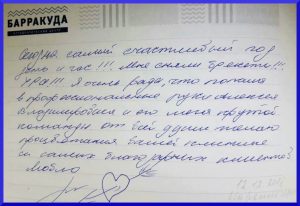 БАРРАКУДА
Сегодня самый счастливый год
день и час!!! Мне сняли брекеты!!!
УРА!!! Я очень рада, что попала
в профессиональные руки Алексея
Владимировича и его
команду. от всей души желаю
процветания вашей клинике
и самых благодарных клиентов!
Люблю